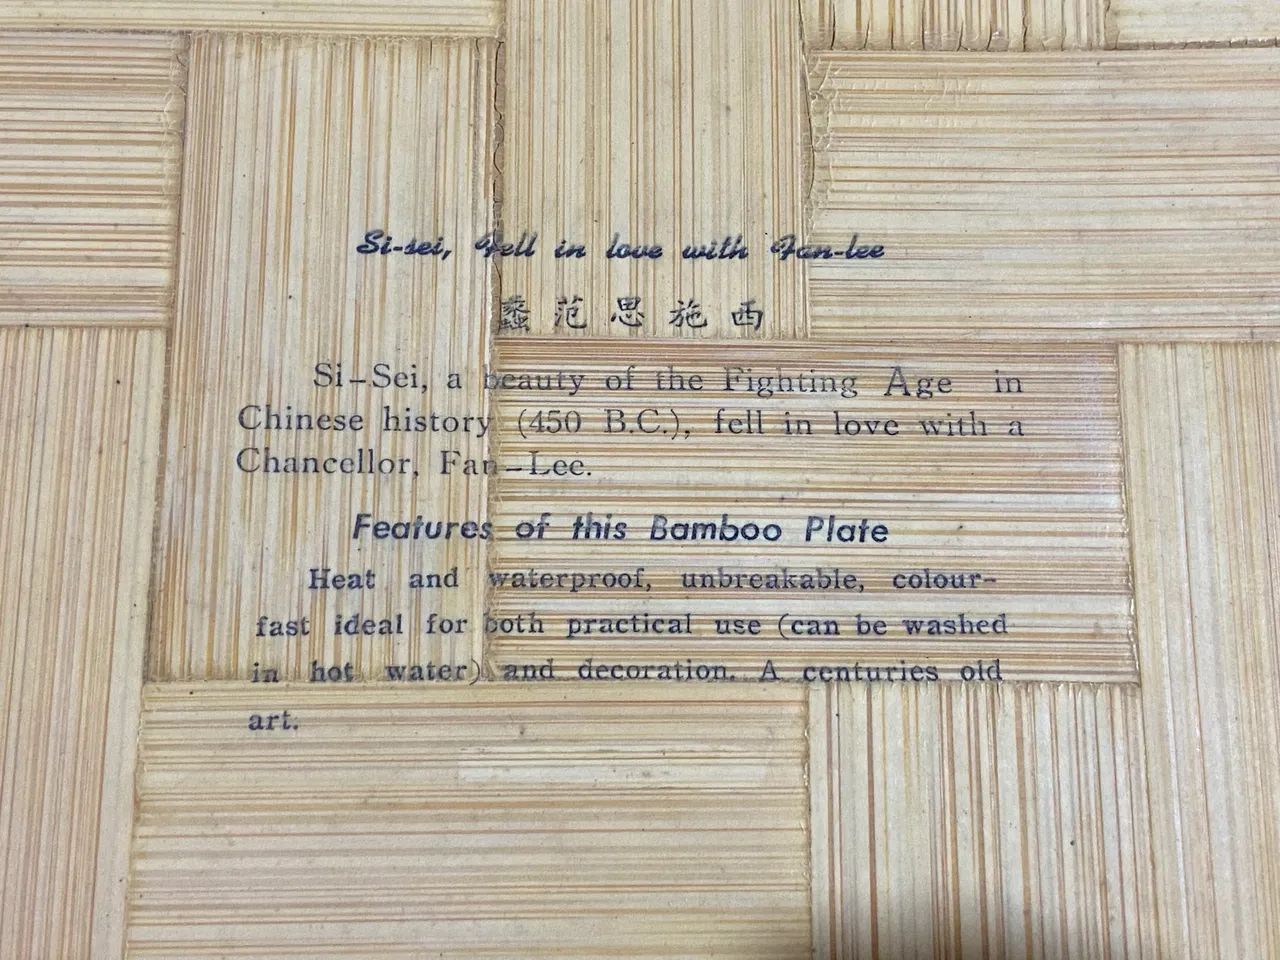 Si-sei, Fell in love with Fan-lee
西施思范蠡
Si-Sei, a beauty of the Fighting Age in
Chinese history (450 B.C.), fell in love with a
Chancellor, Fan-Lee.
Features of this Bamboo Plate
Heat and waterproof, unbreakable, colour-
fast ideal for both practical use (can be washed
in hot water) and decoration. A centuries old
art.